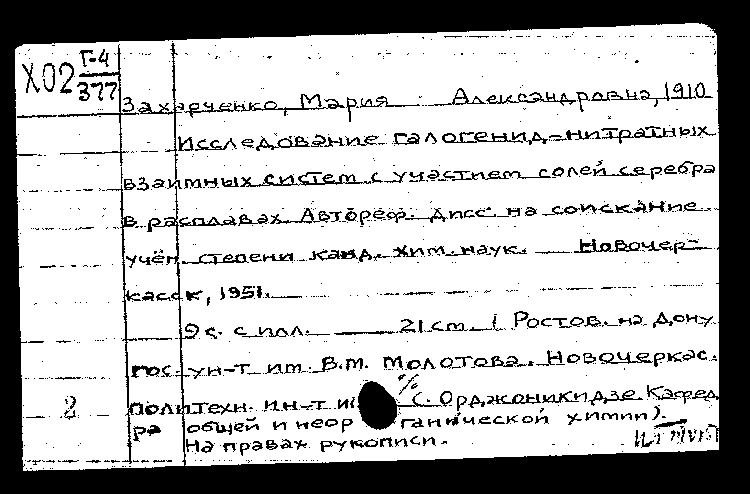 Х02 Г-4
377
Захарченко, Мария Александровна, 1910
Исследование галогенид-нитратных
взаимных систем с участием солей серебра
в расплавах. Автореф. дисс. на соискание
учён. степени канд. хим. наук. Новочер-
касск, 1951.
9 с. с илл. 21 см. (Ростов. на Дону
гос. ун-т им. В.М. Молотова. Новочеркас.
2 политехн. ин-т С. Орджоникидзе. Кафед
ра общей и неор ганической химии).
На правах рукописи.